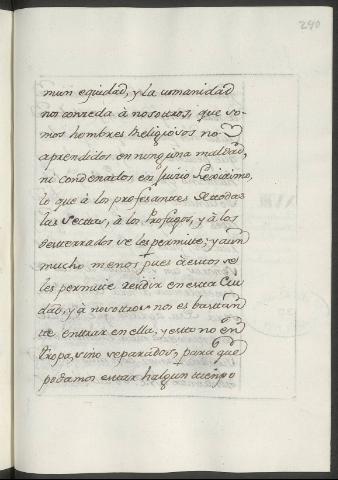 240
mun equidad, y la umanidad
nos conceda à nosotros, que so-
mos hombres Religiosos no
aprendidos en ninguna maldad,
ni condenados en Juicio
lo que à los profesantes de todas
las Sectas, à los Profugos, y à los
desterrados se les permite; y aun
mucho menos pues à estos se
les permite residir en esta Ciu
dad, y à nosotros no es bastan
te entrar en ella, y esto no en
tropa, sino separados, para que
podamos estar halgun tiempo